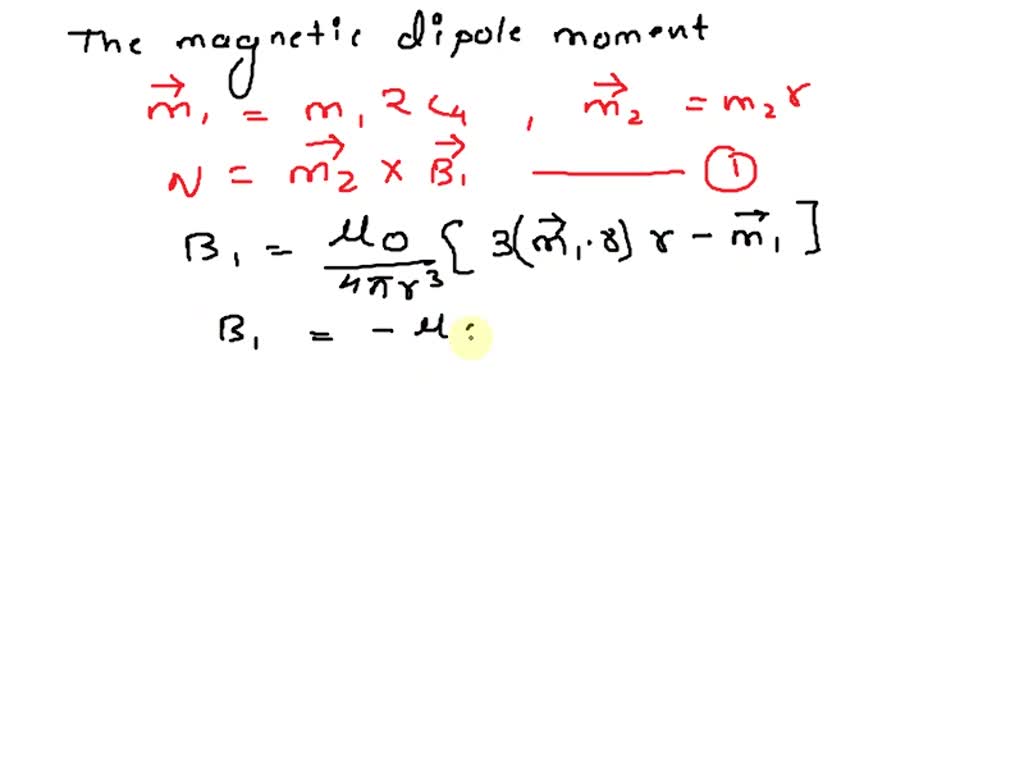 The magnetic dipole moment
m⃗₁ = m₁ 2 C₄ , m⃗₂ = m₂ r
N = m⃗₂ × B⃗₁ ——— ①
B₁ = μ0/4πr³ { 3(m⃗₁·r) r − m⃗₁ ]
B₁ = − μ